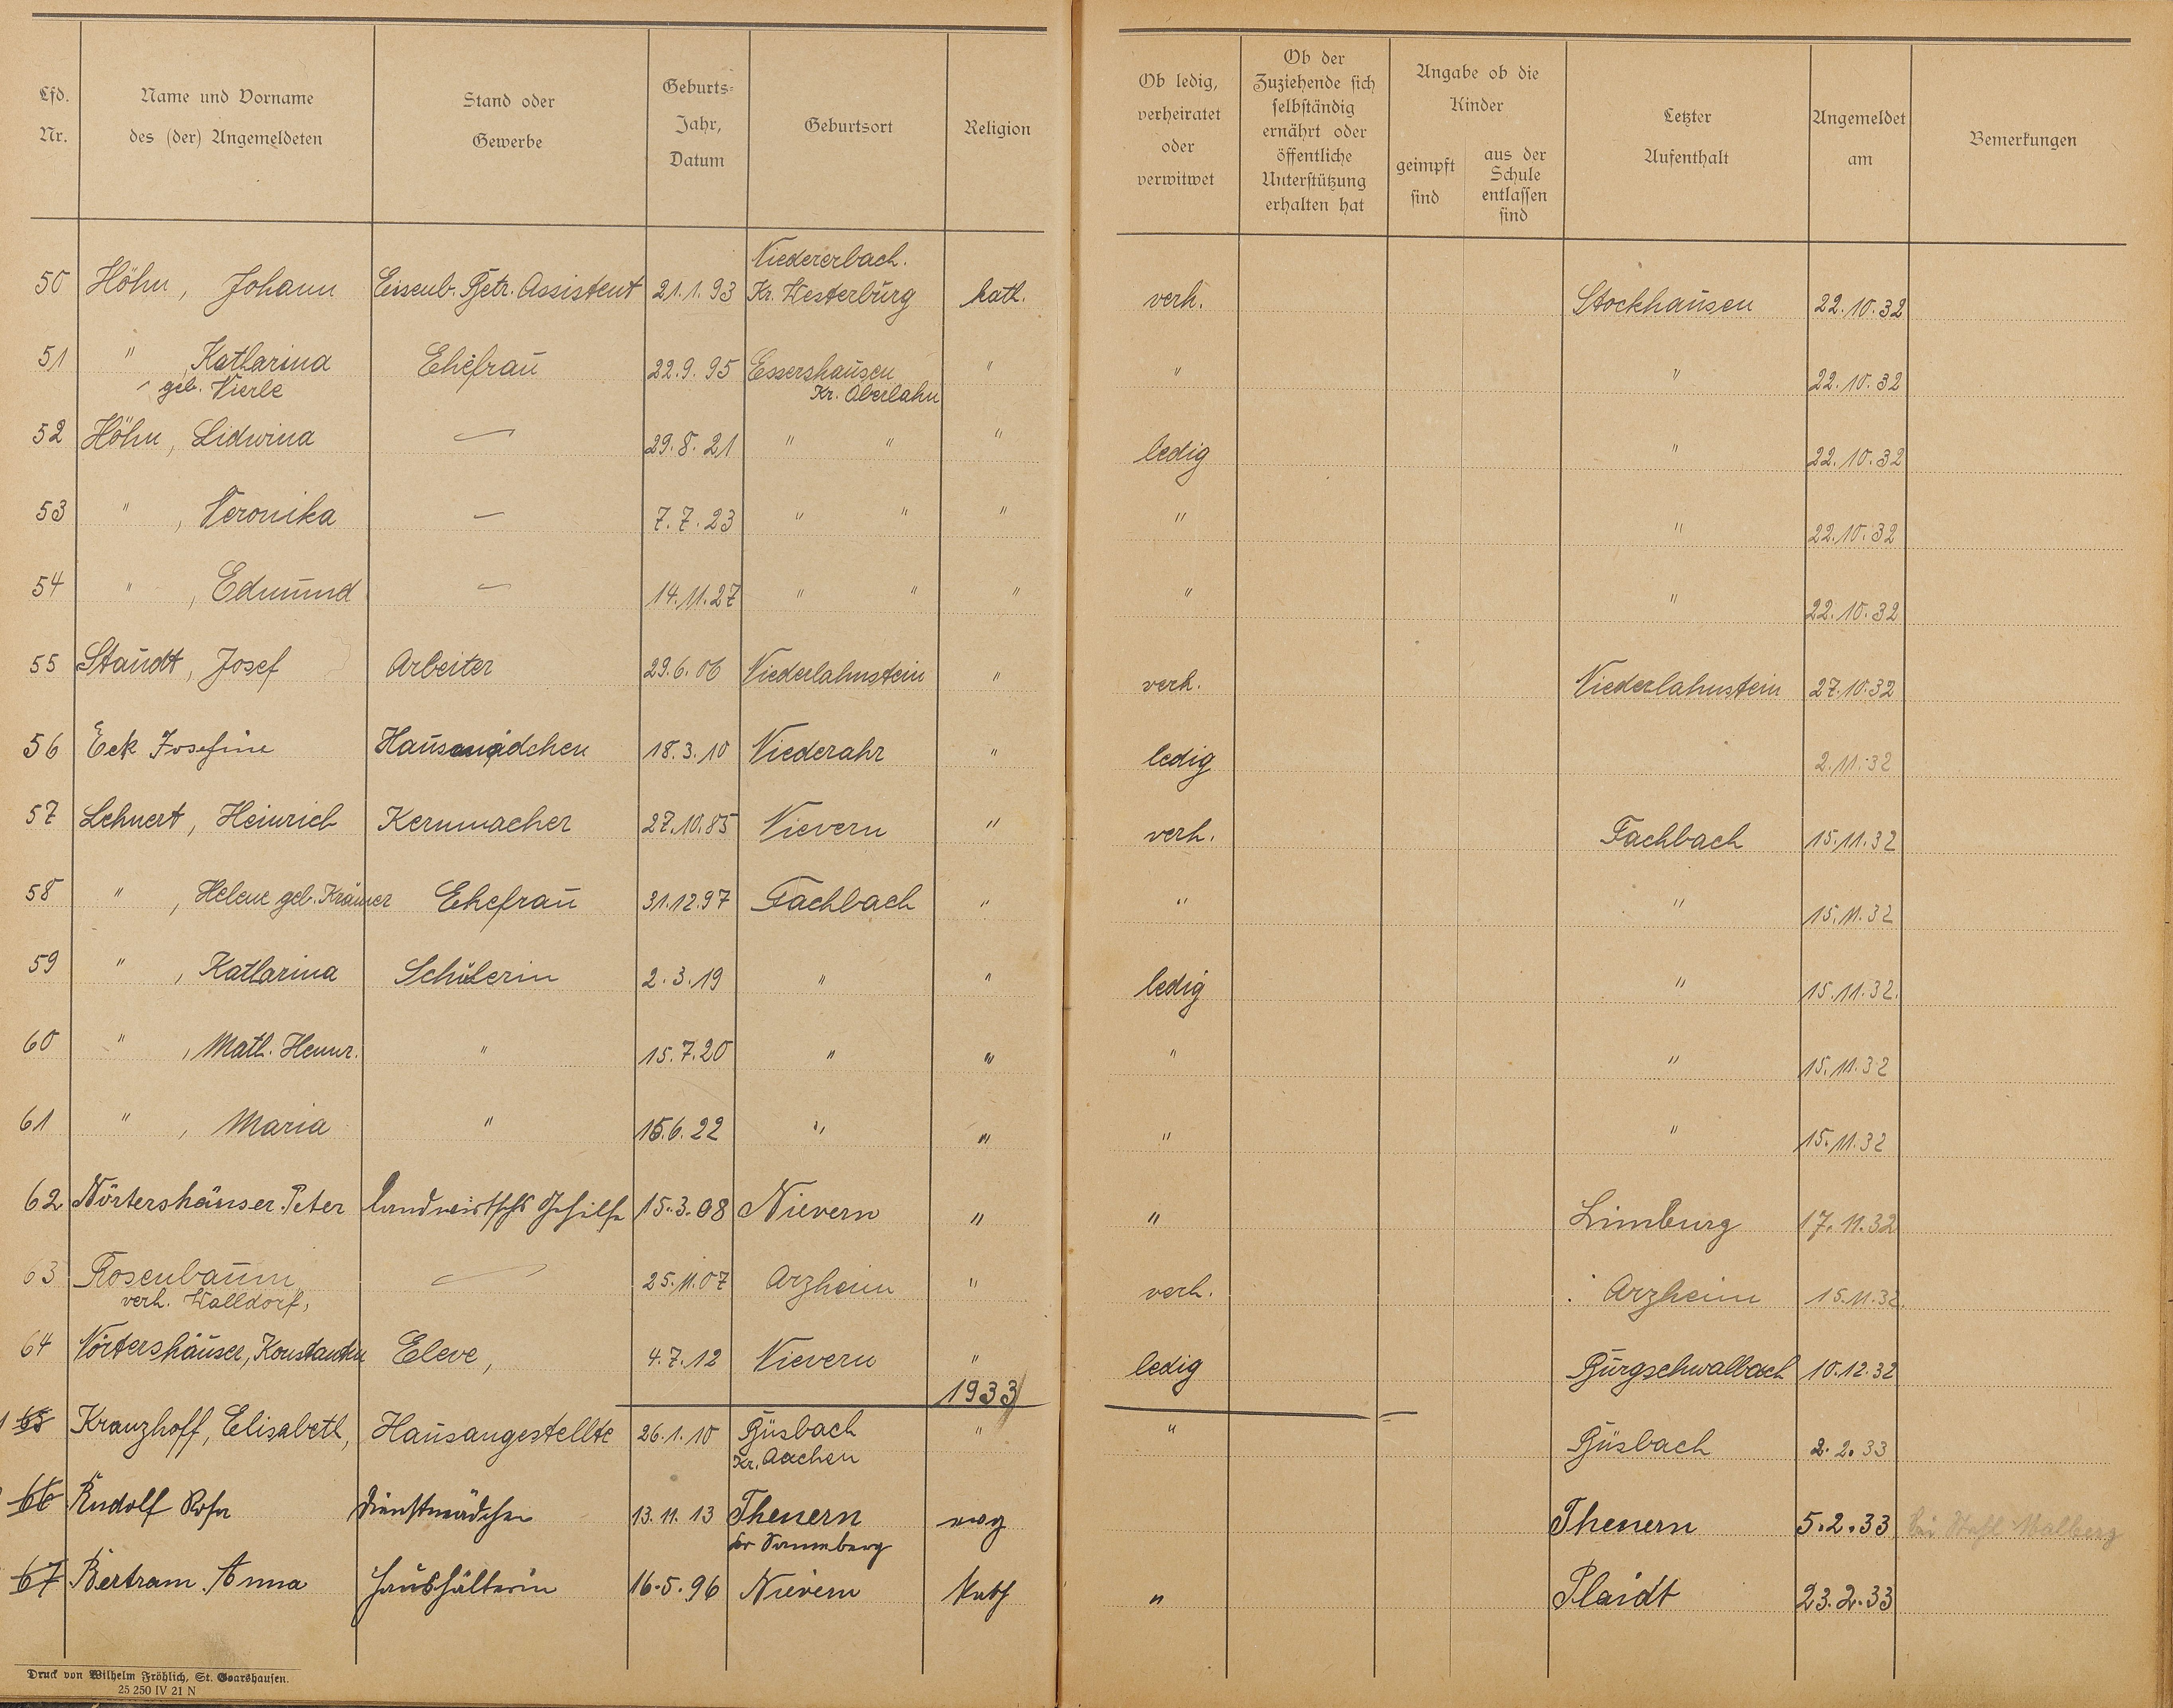 Lfd. Nr. | Name und Vorname des (der) Angemeldeten | Stand oder Gewerbe | Geburts=Jahr, Datum | Geburtsort | Religion | Ob ledig, verheiratet oder verwitwet | Ob der Zuziehende sich selbständig ernährt oder öffentliche Unterstützung erhalten hat | Angabe ob die Kinder geimpft sind | aus der Schule entlassen sind | Letzter Aufenthalt | Angemeldet am | Bemerkungen
50 Höhn, Johann Eisenb. Betr. Assistent 21.1.93 Niedererbach. Kr. Westerburg kath. verh. Stockhausen 22.10.32
51 " , Katharina geb. Vierle Ehefrau 22.9.95 Essershausen Kr. Oberlahn " " " 22.10.32
52 Höhn, Lidwina — 29.8.21 " " " ledig " 22.10.32
53 " , Veronika — 7.7.23 " " " " " 22.10.32
54 " , Edmund — 14.11.27 " " " " " 22.10.32
55 Staudt, Josef Arbeiter 29.6.06 Niederlahnstein " verh. Niederlahnstein 27.10.32
56 Eck Josefine Hausmädchen 18.3.10 Niederahr " ledig 2.11.32
57 Lehnert, Heinrich Kernmacher 27.10.85 Nievern " verh. Fachbach 15.11.32
58 " , Helene geb. Krämer Ehefrau 31.12.97 Fachbach " " " 15.11.32
59 " , Katharina Schülerin 2.3.19 " " ledig " 15.11.32.
60 " , Math. Hennr. " 15.7.20 " " " " 15.11.32
61 " , Maria " 15.6.22 " " " " 15.11.32
62 Nörtershäuser Peter landwirtschl Gehilfe 15.3.08 Nievern " " Limburg 17.11.32
63 Rosenbaum verh. Walldorf, — 25.11.07 Arzheim " verh. Arzheim 15.11.32.
64 Nörtershäuser, Konstantin Eleve, 4.7.12 Nievern " ledig Burgschwalbach 10.12.32
1933
65 Kranzhoff, Elisabeth, Hausangestellte 26.1.10 Büsbach Kr. Aachen " " Büsbach 2.2.33
66 Rudolf Rosa Dienstmädchen 13.11.13 Theuern Kr Sonneberg evg Theuern 5.2.33 bei Malberg
67 Bertram Anna Haushälterin 16.5.96 Nievern Kath " Plaidt 23.2.33
Druck von Wilhelm Fröhlich, St. Goarshausen.
25 250 IV 21 N